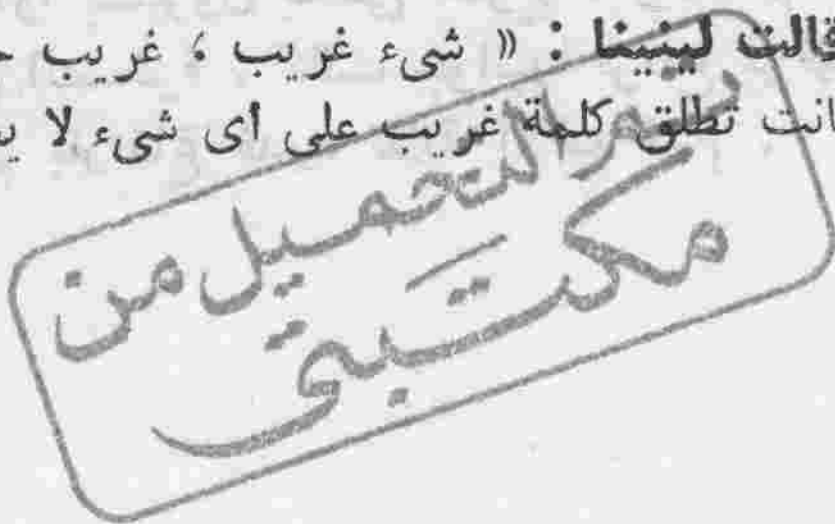 قالت لينينا : « شىء غريب ، غريب
انت تطلق كلمة غريب على أى شىء لا
التحميل من
مكتبتى